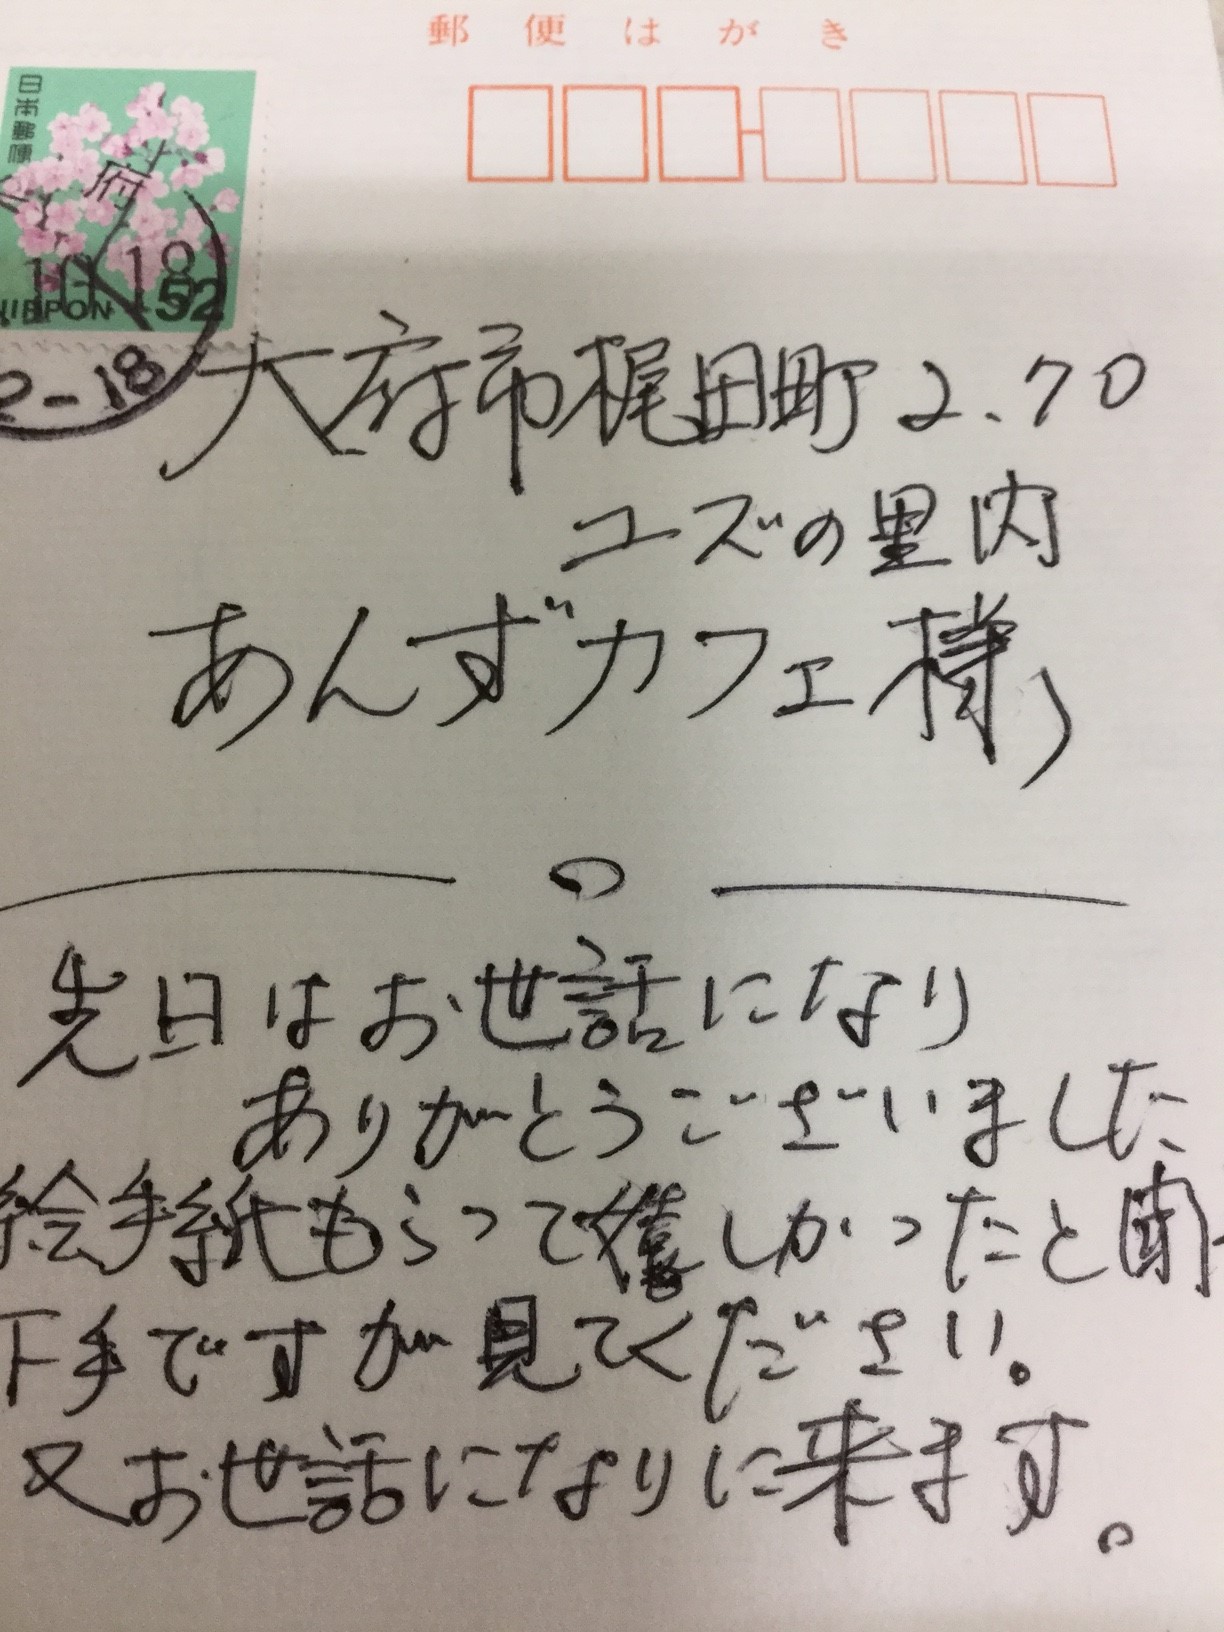 郵便はがき
日本郵便
府
10.18
NIPPON 52
2-18
大府市梶田町2.70
ユズの里内
あんずカフェ様
先日はお世話になり
ありがとうございました
絵手紙もらって嬉しかったと聞
下手ですが見てください。
又お世話になりに来ます。